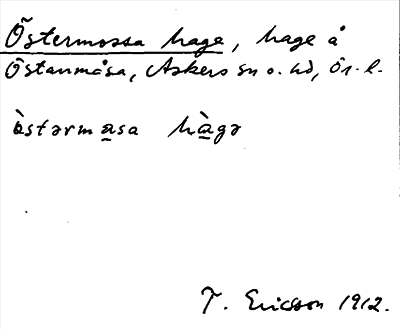 Östermossa hage, hage å
Östanmåsa, Askers sn o. hd, Ör. l.
ə̀stərmasa hàgə
T. Ericsson 1912.